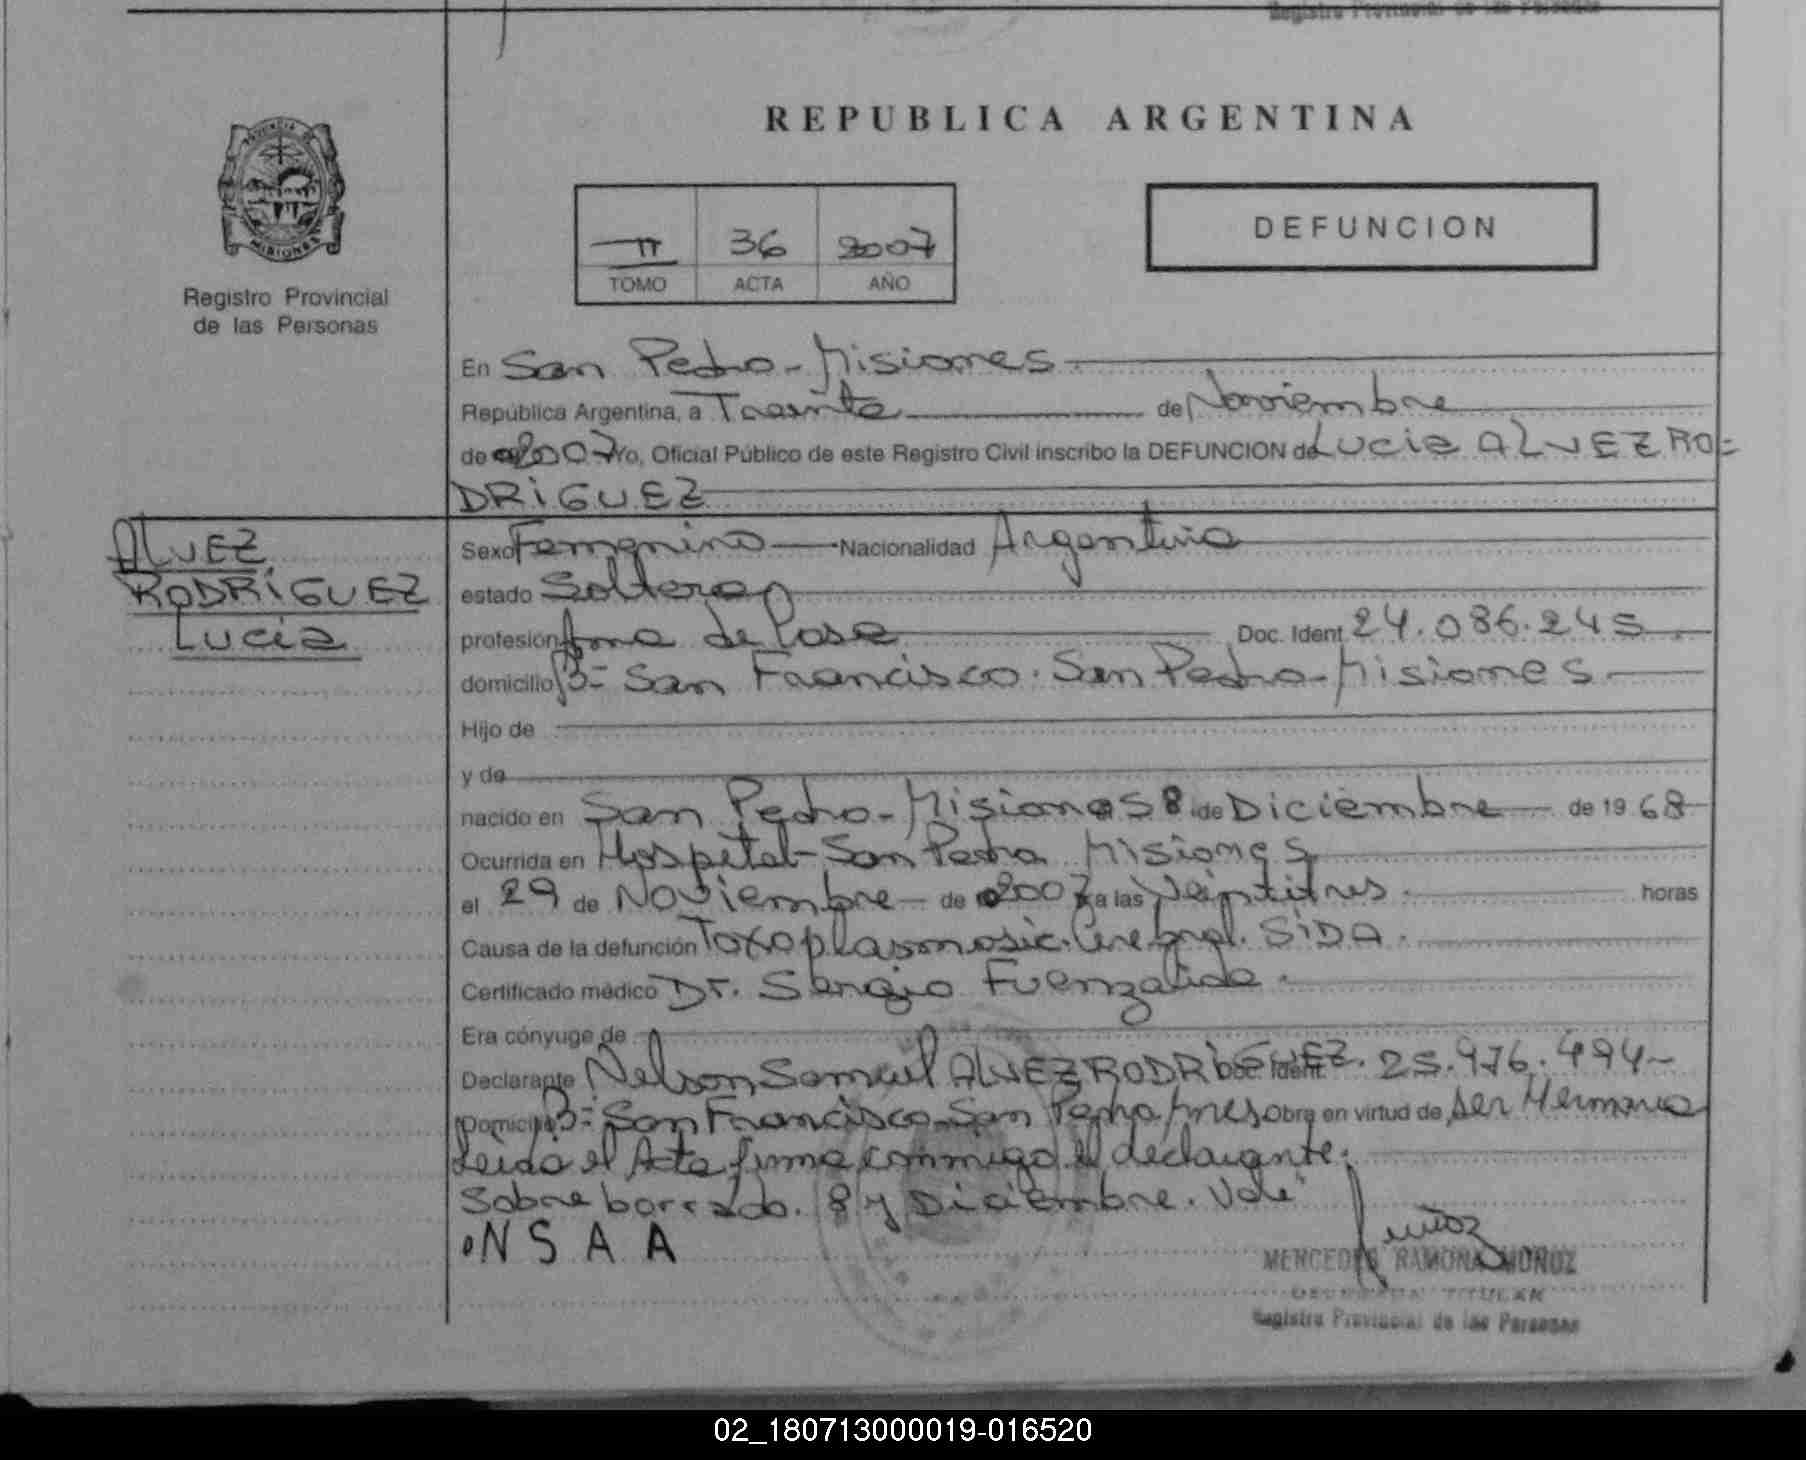 Registro Provincial de las Personas
REPUBLICA ARGENTINA
PROVINCIA DE MISIONES
Registro Provincial
de las Personas
II 36 2007
TOMO ACTA AÑO
DEFUNCION
En San Pedro - Misiones
República Argentina, a Treinta de Noviembre
de 2007 Yo, Oficial Público de este Registro Civil inscribo la DEFUNCION de Lucia ALVEZ RO=
DRIGUEZ
ALVEZ
RODRIGUEZ
Lucia
Sexo Femenino Nacionalidad Argentina
estado Soltera
profesión Ama de Casa Doc. Ident. 24.086.245
domicilio Bº= San Francisco. San Pedro - Misiones
Hijo de
y de
nacido en San Pedro - Misiones 8 de Diciembre de 19 68
Ocurrida en Hospital - San Pedro Misiones
el 29 de Noviembre de 2007 a las Veintitres horas
Causa de la defunción Toxoplasmosic. Cerebral. SIDA.
Certificado médico Dr. Sergio Fuenzalida.
Era cónyuge de
Declarante Nelson Samuel ALVEZ RODRIGUEZ. Doc. Ident. 25.976.494
Domicilio Bº= San Francisco San Pedro Mnes obra en virtud de ser Hermano
Leida el Acta firma conmigo el declarante.
Sobre borrado. 8 y Diciembre. Vale
NSAA
Muñoz
MERCEDES RAMONA MUÑOZ
DELEGADA TITULAR
Registro Provincial de las Personas
02_180713000019-016520